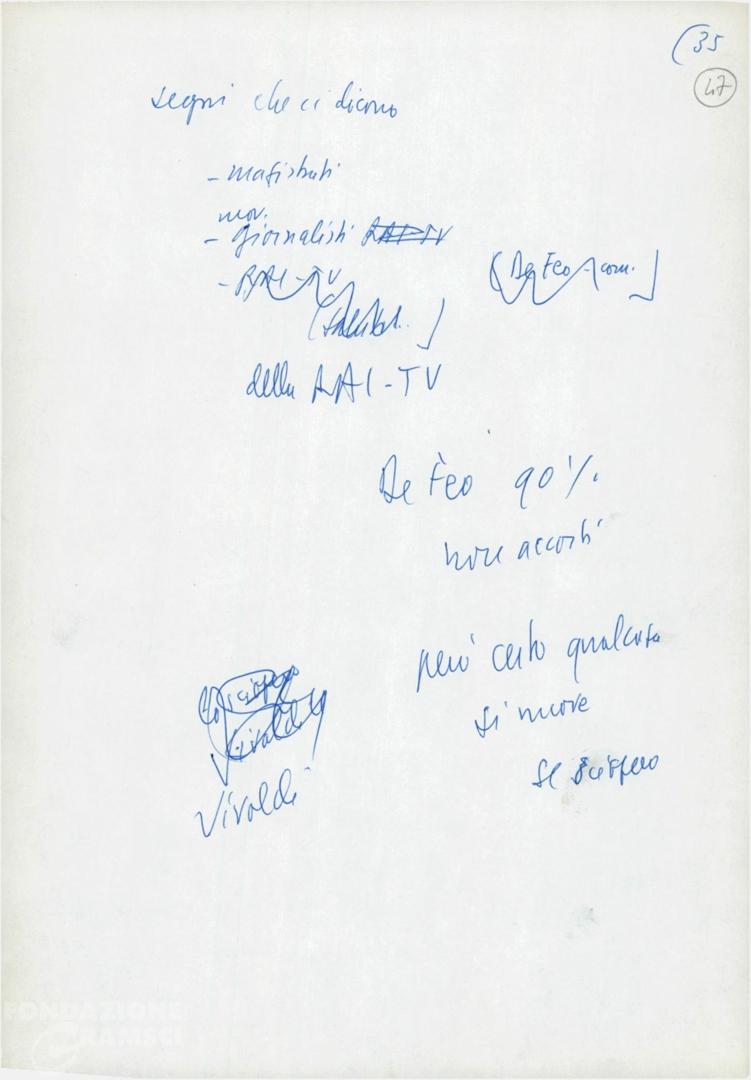 (35
47
segni che ci dicono
- magistrati
mov.
- giornalisti RAI-TV
- RAI-TV
[De Feo - com.]
della RAI-TV
De Feo 90%
non accordi
però certo qualcosa
si muove
se sciopero
Lo sciopero
Vivaldi
Vivaldi
FONDAZIONE
GRAMSCI